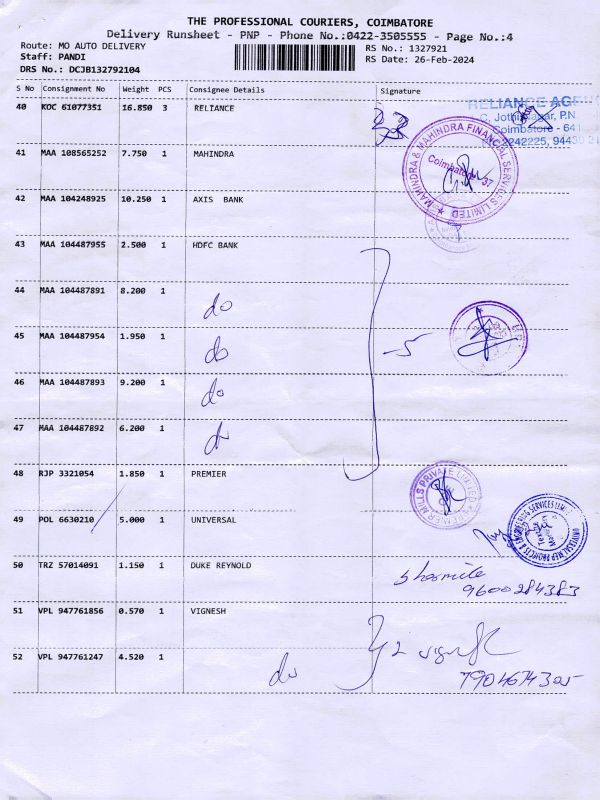 THE PROFESSIONAL COURIERS, COIMBATORE
Delivery Runsheet - PNP - Phone No.:0422-3505555 - Page No.:4
Route: MO AUTO DELIVERY RS No.: 1327921
Staff: PANDI RS Date: 26-Feb-2024
DRS No.: DCJB132792104
S No Consignment No Weight PCS Consignee Details Signature
40 KOC 61077351 16.850 3 RELIANCE
RELIANCE AGEN
C, Jothi Nagar, P.N
Coimbatore - 641
2242225, 94430 21
41 MAA 108565252 7.750 1 MAHINDRA
MAHINDRA & MAHINDRA FINANCIAL SERVICES LIMITED
Coimbatore 37
42 MAA 104248925 10.250 1 AXIS BANK
43 MAA 104487955 2.500 1 HDFC BANK
44 MAA 104487891 8.200 1 do
45 MAA 104487954 1.950 1 do
-5
46 MAA 104487893 9.200 1 do
47 MAA 104487892 6.200 1 do
48 RJP 3321054 1.850 1 PREMIER
PREMIER MILLS PRIVATE LIMITED
49 POL 6630210 5.000 1 UNIVERSAL
UNIVERSAL MEP PROJECTS & ENGINEERING SERVICES LIMITED
50 TRZ 57014091 1.150 1 DUKE REYNOLD
9600284383
51 VPL 947761856 0.570 1 VIGNESH
2
52 VPL 947761247 4.520 1 do
7904674305